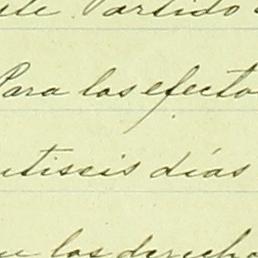 Partido
Para los efecto
utiseis días
los derecho